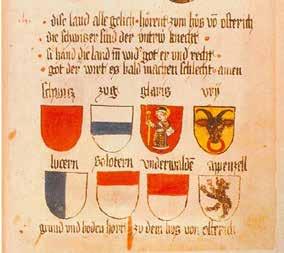 dise land alle gelich hörent zum hus vō ostrich
die schwitzer sind der vntrüw knecht
si hānd die land īn wid' got er vnd recht
got der wirt es bald machen schlecht amen
schwitz zug glaris vry
lucern solotern vnderwaldē apenzell
grund vnd boden hört zu dem hus von ostrich